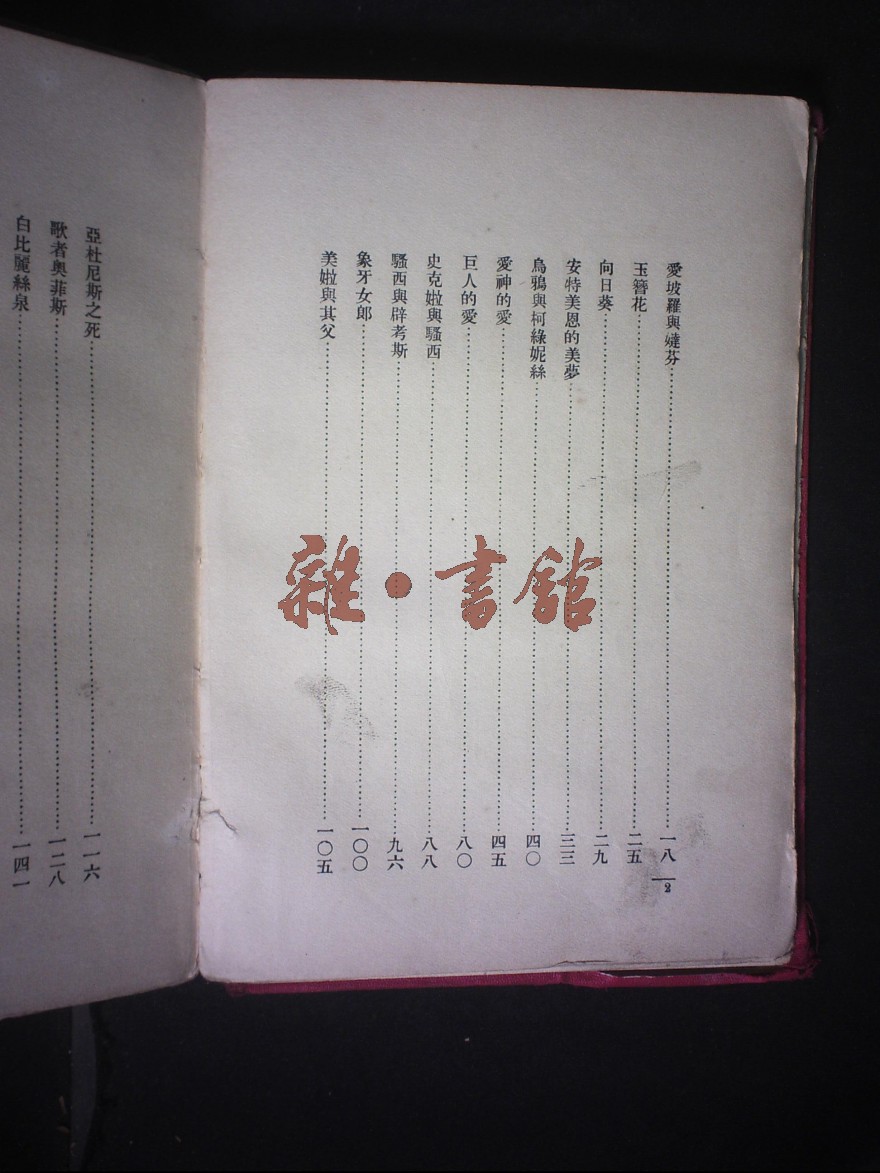 愛坡羅與嬘芬……一八
玉簪花……二五
向日葵……二九
安特美恩的美夢……三三
烏鴉與柯綠妮絲……四〇
愛神的愛……四五
巨人的愛……八〇
史克姒與騷西……八八
騷西與辟考斯……九六
象牙女郎……一〇〇
美姒與其父……一〇五
2
亞杜尼斯之死……一一六
歌者奥菲斯……一二八
白比麗絲泉……一四一
雜·書館